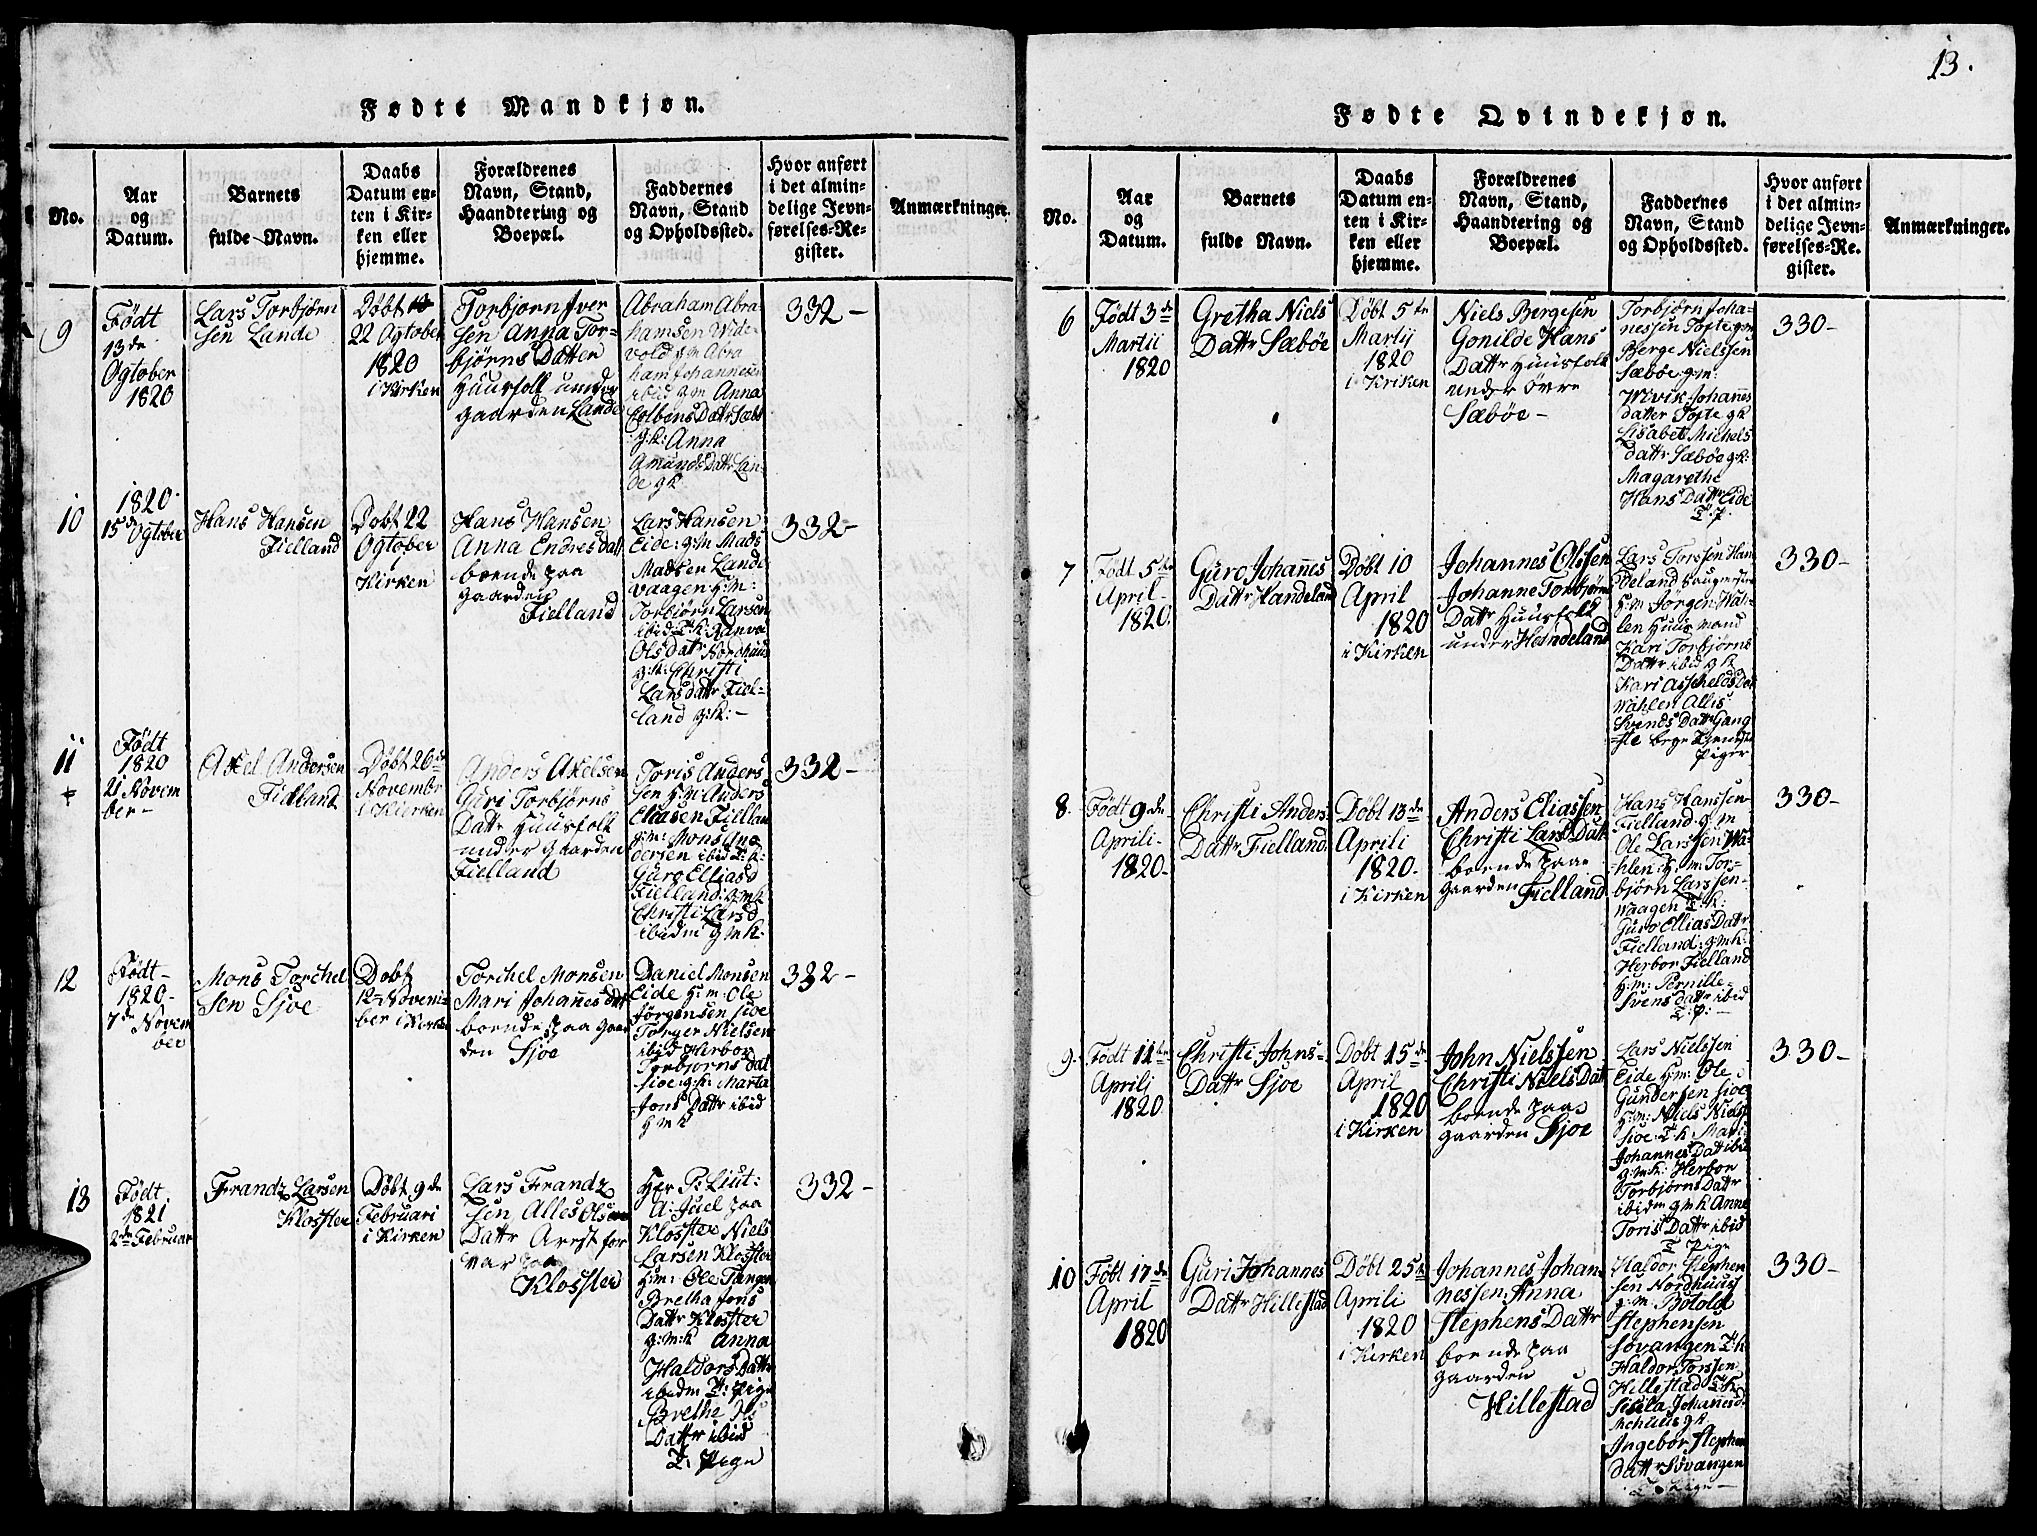 Fødte Mandkjøn.
No.
Aar
og
Datum.
Barnets
fulde Navn.
Daabs
Datum en-
ten i Kir-
ken eller
hjemme.
Forældrenes
Navn, Stand,
Haandtering og
Boepæl.
Faddernes
Navn, Stand
og Opholdssted.
Hvor anført
i det almin-
delige Jevn-
førelses-Re-
gister.
Anmærkninger.
9
Født
13de
Ogtober
1820
Lars Torbjørn
sen Lande
Døbt
22 Ogtober
1820
i Kirken
Torbjorn Iver
sen Anna Tor-
bjørns Datter
Huusfolk under
gaarden Lande
Abraham Abra-
hamsen Wide-
vold gm Abra
ham Johannesen
ibid gm Anna
Colbens Datr Sæbø
g:k: Anna
Amunds Datr Lan-
de gk
332-
10
1820
15de Ogtober
Hans Hansen
Fielland
Døbt 22
Ogtober
Kirken
Hans Hansen
Anna Endres datt
boende paa
gaarden
Fielland
Lars Hansen
Eide: g:m Mads
Madsen Lande
Vaagen g:m:
Torbiørn Larsen
ibid T:k: Ranva
Ols datr Nordhuus
g:k: Christi
Lars datr Fiel-
land g:k: -
332-
11
Født
1820
21 Novem
ber-
Axel Andersen
Fielland
Døbt 26de
Novembr
i Kierken
Anders Axelsen
Guri Torbjørns
Datr Huusfolk
under gaarden
Fielland
Toris Anders
sen H:m: Anders
Eliasen Fiellan
g:m: Mons An
dersen ibid T:k:
Guro Ellias d
Fielland: gmk
Christi Lars d
ibidm gmk:
332-
12
Født-
1820-
7de Novem
ber
Mons Torchel
Sen Sjoe
Døbt
12te Novem-
ber i Kirken
Torchel Monsen
Mari Johanes dat
boende paa gaar
den Sjoe
Daniel Monsen
Eide H:m: Ole
Jørgensen Sioe
Torger Nielsen
ibid Herbor
Torbjorns dat
sioe: g:k: Marta
Jons Datr ibid
gmk
332-
13
Født
1821
2de Februar
Frandz Larsen
Kloster
Døbt 9de
Februari
i Kirken
Lars Frandz
sen Alles Olsen
Datr Arrst for
var paa
Kloster
Her P: Liut:
A: Juel paa
Kloster Niels
Larsen Kloster
H:m: Ole Tangen
Bretha Jons
Datr Kloster
g:m:k Anna
Haldors Datr
ibidm T: Pige
Brethe
Datr ibid
T: Pige
332-
13.
Fødte Qvindekjøn.
No.
Aar
og
Datum.
Barnets
fulde Navn.
Daabs
Datum en-
ten i Kir-
ken eller
hjemme.
Forældrenes
Navn, Stand,
Haandtering og
Boepæl.
Faddernes
Navn, Stand
og Opholdssted.
Hvor anført
i det almin-
delige Jevn-
førelses-Re-
gister.
Anmærkninger.
6
Født 3de
Martii
1820
Gretha Niels
Datr Sæbøe
Døbt 5te
Martij
1820
i Kriken
Niels Bergesen
Gonilde Hans
Datr Huusfolk
under Øvre
Sæbøe-
Torbjørn Joha-
nessen Tofte gm
Berge Nielssen
Sæbøe g:m:
Wivik Johanes
datter Tofte gk
Lisabet Michels
datr Sæbøe gk:
Magarethe
Hans Datr Eide
T: p.
330-
7
Født 5te
April-
1820.
Guro Johanes
Datr Handeland
Døbt 10
April
1820
i Kirken
Johannes Olssen
Johanne Torbjørns
Datr Huusfolk
under Handeland
Lars Torssen Han
deland
H:m Jørgen Wah-
len Huusmand
Kari Torbjørns
Datr ibid gk
Kari Asheldsdat
Wahlen Allis
Svends Datr Gang
ste bege tjeneste
Piger
330-
8.
Født 9de
Aprili-
1820-
Christi Anders
Datr Fielland
Døbt 13de
Aprili
1820-
i Kirken
Anders Eliassen
Christi Lars Dat
boende paa
gaarden Fielland
Hans Hanssen
Fielland g:m
Ole Larssen Wa-
hlen: g:m: Tor-
bjørn Larssen-
Waagen T:k:
Guro Ellias Datr
Fielland: gmk:
Herbor Fielland
H:m: Pernille
Svens datr ibid
T: P: -
330-
9.
Født 11te
Aprili
1820
Christi Johns-
Datr Sjoe
Døbt 15de
April
1820
i Kirken
John Nielssen
Christi Niels Dat
boende paa
gaarden Sjoe
Lars Nielssen
Eide H:m: Ole
Gundersen sioe
H:m: Niels Niels
sioe: T:k: Mari
Johannes Dat ibid
g:m:k: Herbor
Torbjørns Datr
ibidm gmk Anne
Toris Datr ibid
T Pige
330-
10
Født 17de
April
1820
Guri Johannes
Datr Hillestad
Døbt 25te
Aprili
1820
i Kirken
Johannes Johan-
nessen Anna
Stephens Datr
boende paa
gaarden
Hillestad
Haldor Stephen
sen Nordhuus
g:m: Botold
Stephensen
Søvangen T:k
Haldor Torssen
Hillestad T:k
Sisela Johannes d
Mehuus gk
Ingebor Stephen
datr Søvangen
T: Pige-
330-